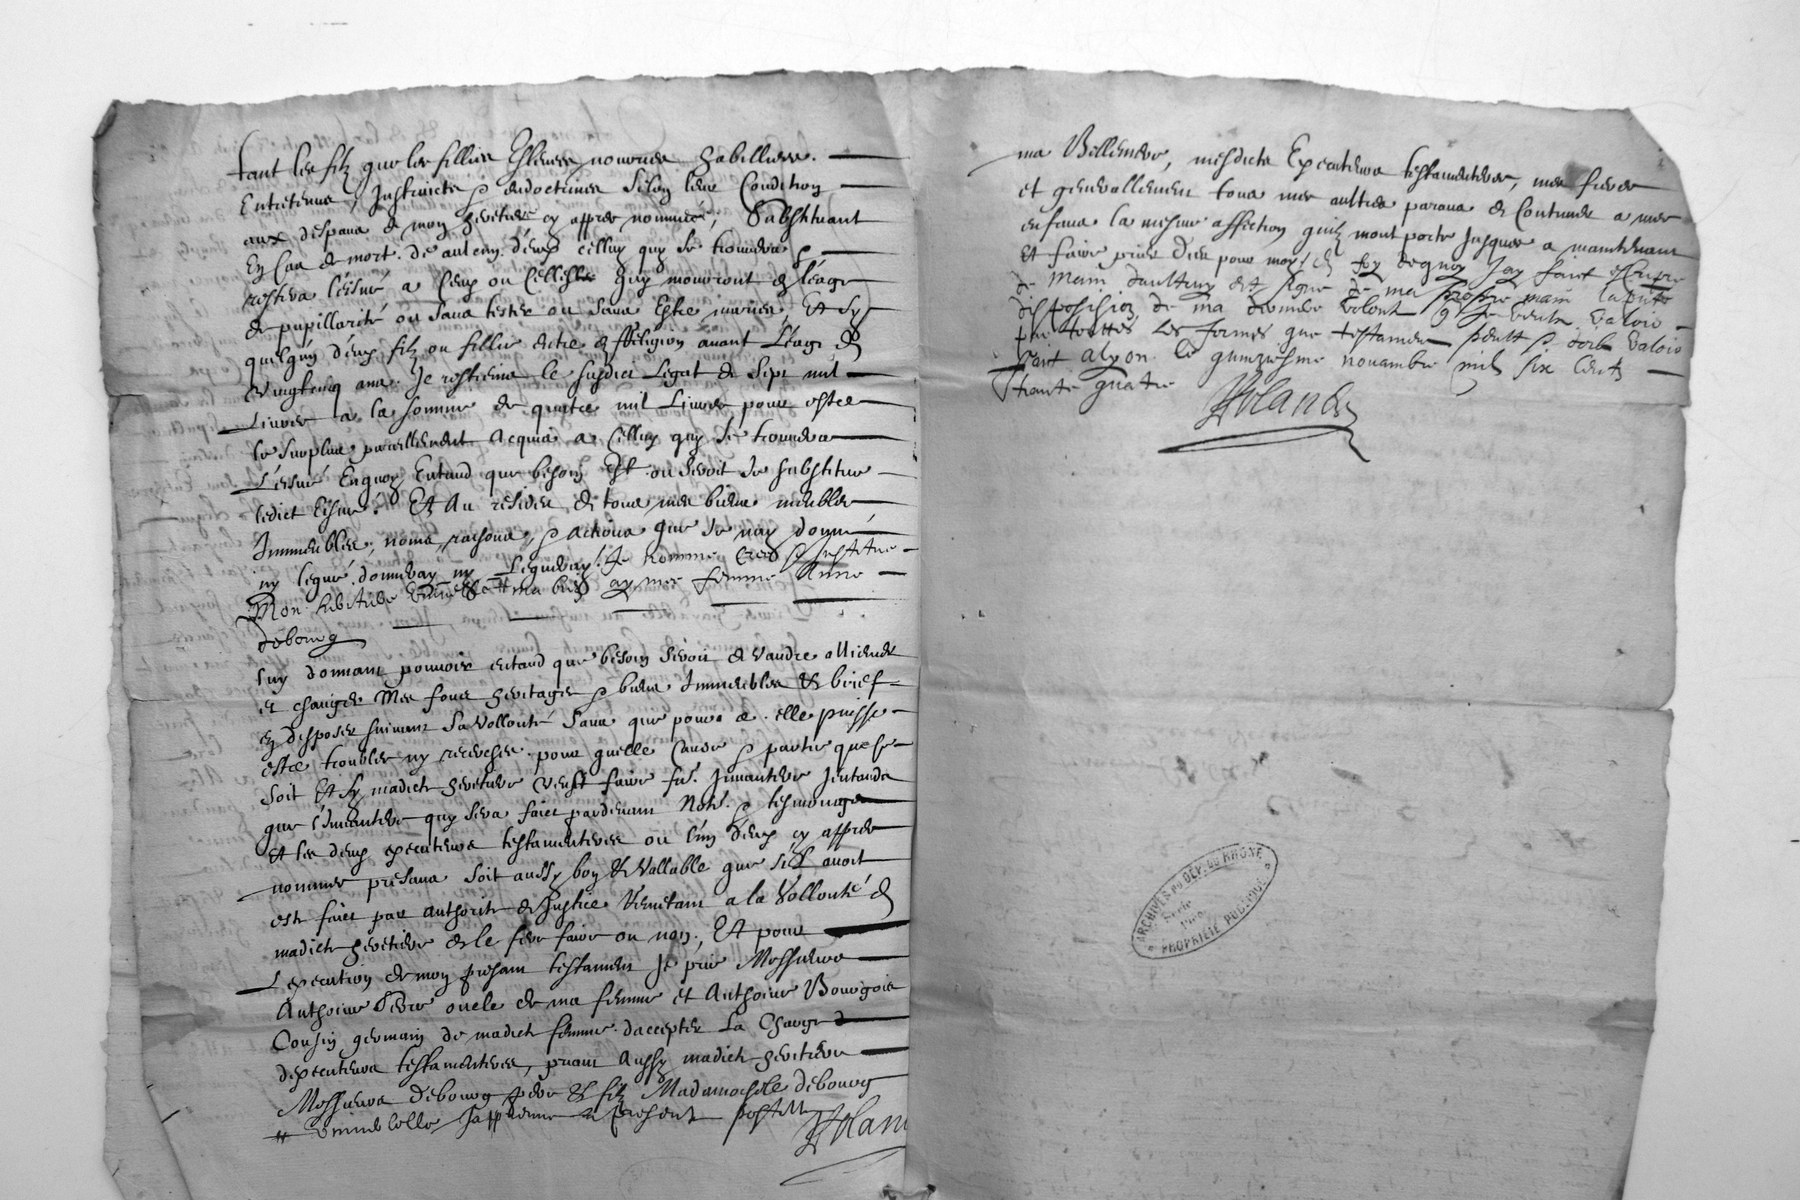 tant les filz que les filles Eslevees nourries habillees
Entretenus, Instruicts & endoctrines selon leur Condition
aux despans de mon heritiere cy appres nommee, Substituant
En Cas de mort de aulcun d'eux celluy quy se trouvera
restera l'eisné a ceux ou Celles quy mourront en l'eage
de pupillarité ou sans tester ou sans Estre mariés, Et Sy
quelqun d'eux filz ou filles entre en Religion avant L'eage de
vingtcinq ans Je restrains le susdict Legat de Sept mil
Livres a la somme de quatre mil Livres pour estre
le surplus pareillement acquis a Celluy quy se trouvera
L'eisné Enquoy Entand que besoin Est ou seroit Je substitue
ledict Eisné. Et Au residu de tous mes biens meubles
Immeubles, noms, raisons, & actions que Je n'ay donné
ny legué, donneray ny Legueray, Je nomme Crée & Institue
Mon heritiere universelle ma femme Anne
debourg
luy donnant pouvoir entand que besoin seroit de vandre alliener
et changer Mes fons heritages & biens Immeubles & brief
en disposer suivant sa vollonté sans que pour ce elle puisse
estre troublée ny recerchee pour quelle Cause & partie que se
soit Et sy madicte heritiere veust faire Inventere Jentands
que l'inventere quy sera faict pardevant Notre & tesmoings
Et les deux executeurs testamenteres ou l'un d'eux cy appres
nommes presans soit aussy bon & Vallable que s'il avoit
esté faict par authorité de Justice Remetant a la Vollonté de
madicte heritiere de le fere faire ou non, Et pour
L'execution de mon presant testament Je prie Messieurs
Anthoine oncle de ma femme et Anthoine Bourgois
Cousin germain de madicte femme d'accepter La Charge
d'executeurs testamenteres, priant Aussy madicte heritiere
Messieurs debourg pere & filz Madamoiselle debourg
# universelle
Holand
ma Bellemere, mesdicts Executeurs testamenteres, mes freres
et generallement tous mes aultres parans de Continuer a mes
enfans la mesme affection quilz mont porté Jusques a maintenant
Et faire prier Dieu pour moy, En foy dequoy Jay faict escripre
de main daultruy et signé de ma propre main la susd
disposission de ma derniere volonté que Je veux valoir
par touttes les formes que testament peult & doibt valoir
faict a lyon le quinziesme novambre mil six Cents
trante quatre
Holand
ARCHIVES DU DEP. DU RHONE
Série
Nro
PROPRIÉTÉ PUBLIQUE